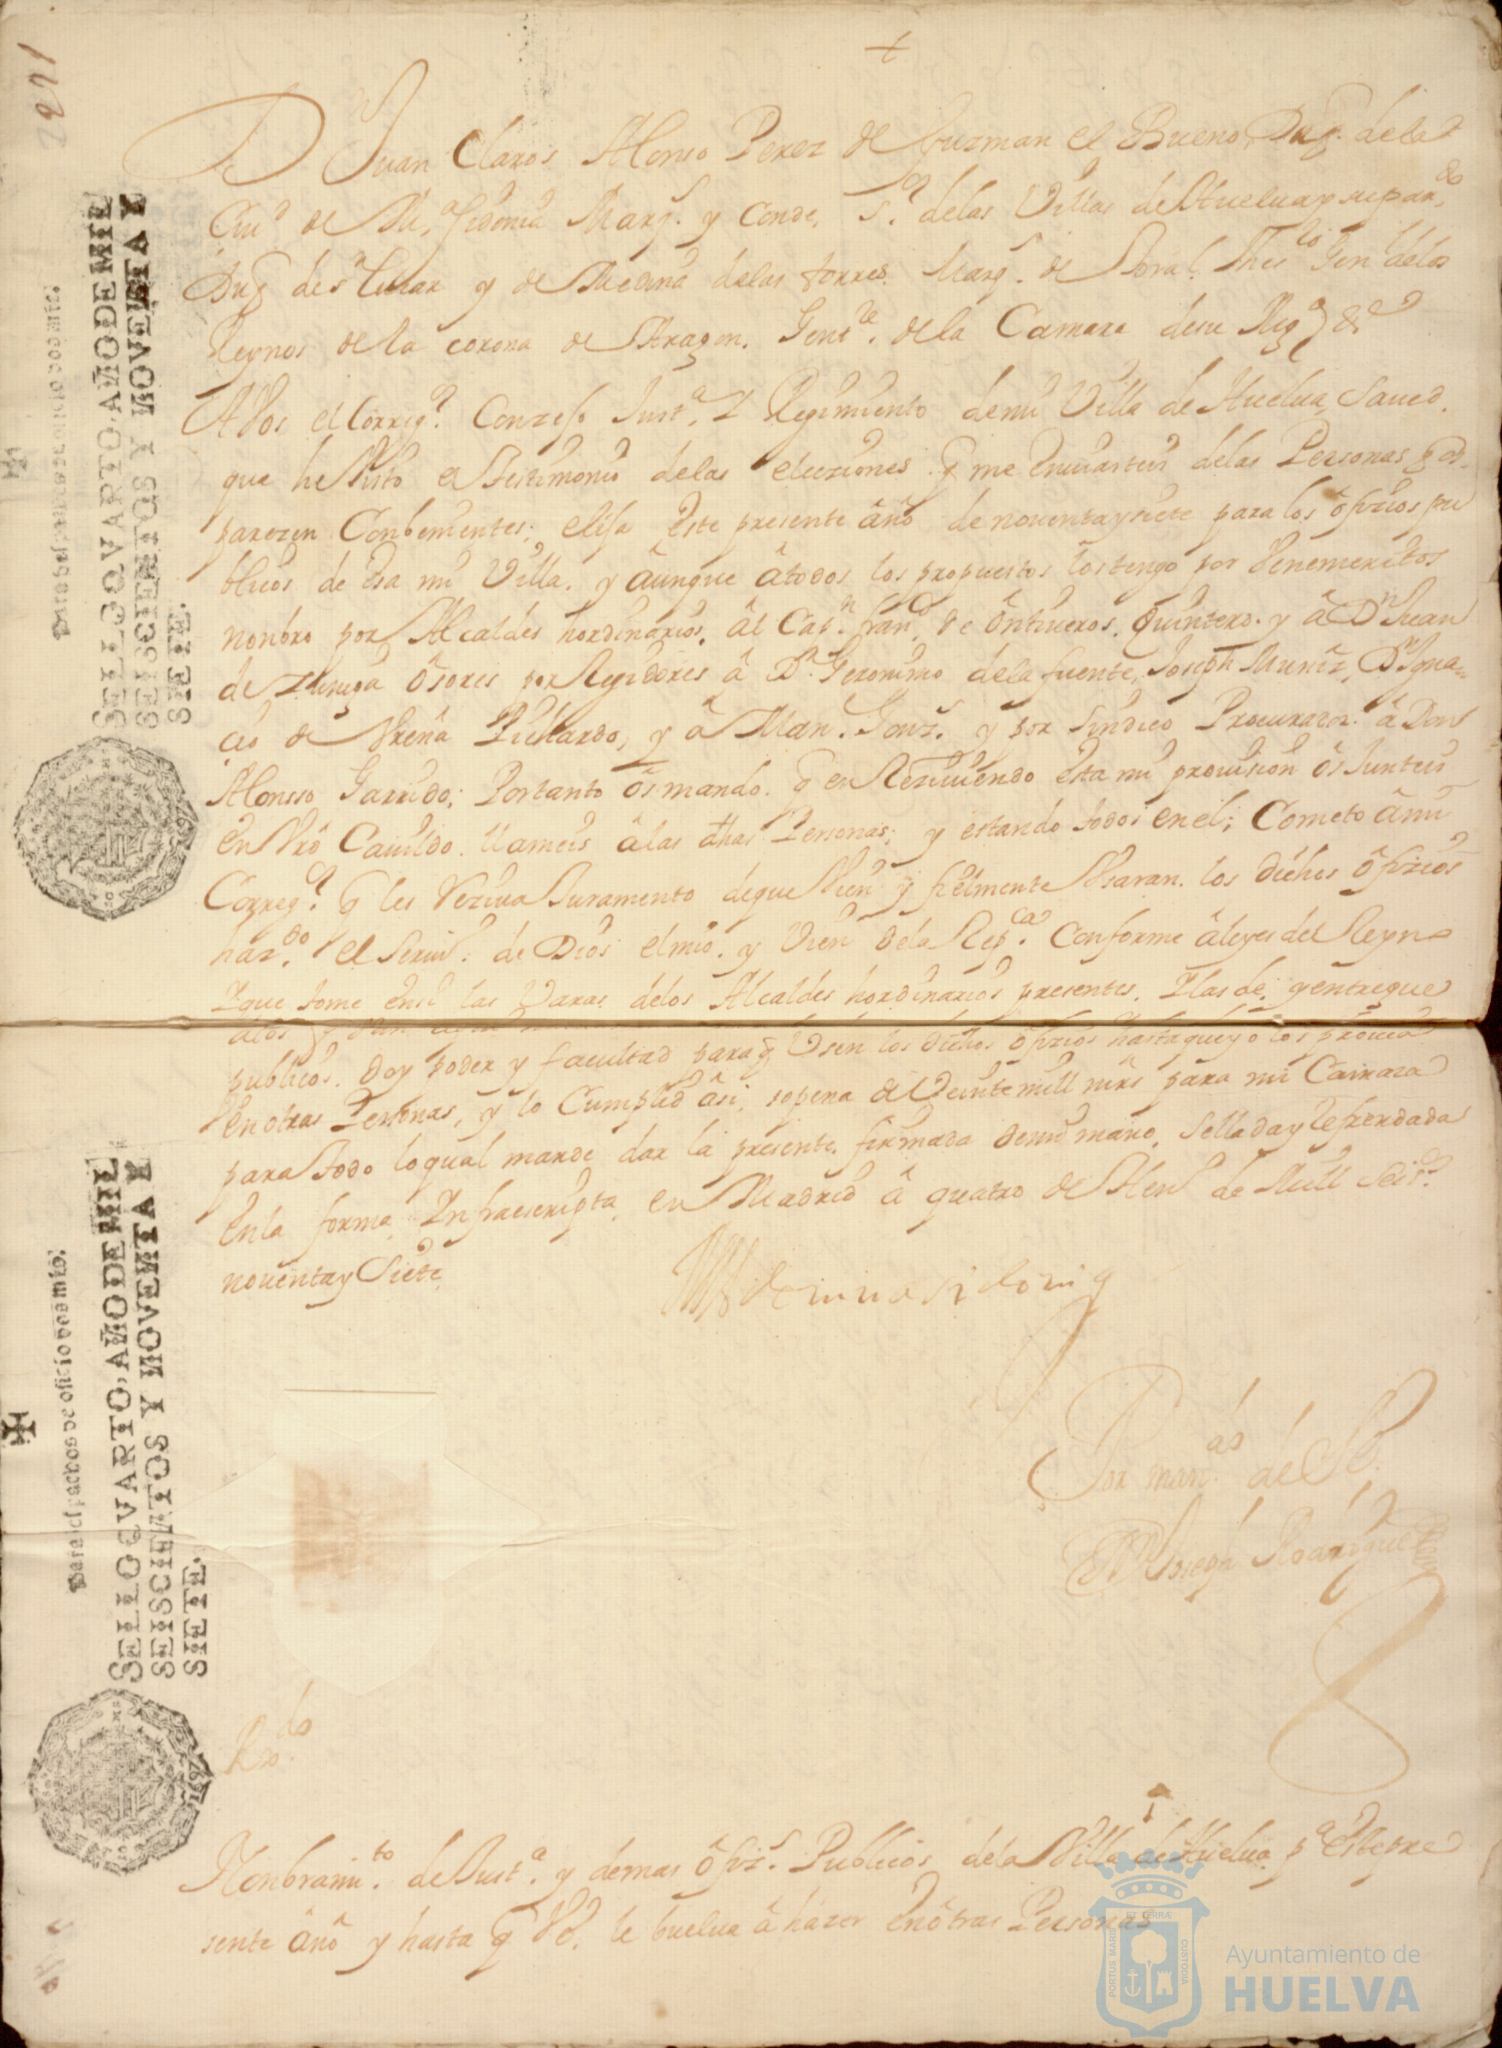 221
Para despachos de oficio dos mrs.
SELLO QVARTO, AÑO DE MIL
SEISCIENTOS Y NOVENTA Y
SIETE.
Dn Juan Claros Alonso Perez de Guzman el Bueno, Duqe. de la
Ciud de Mna. Sidonia Marqs. y Conde, Sor. de las Villas de Huelua y su par.do
Duqe de Sn Lucar y de Medina de las torres. Marqs. de Toral. Thesro Genl de los
Reynos de la corona de Aragon. Gentle. de la Camara de su Magd &a
A Vos el Corregor. Conzejo Justa. Y Regimiento de mi Villa de Huelua, Saued.
que he visto el Testimonio de las elecziones q me inuiasteis de las Personas q os
parezen Conbenientes; elija este presente año de nouenta y siete para los ofizios pu
blicos de esa mi Villa. y âunque âtodos los propuestos los tengo por Venemeritos
nonbro por Alcaldes hordinarios. âl Capn. franco de ôntiueros. Quintero. y â Dn Juan
de Zuniga ôsores por Rejidores â Dn. Geronimo de la fuente, Joseph Muñiz, Dn Igna-
cio de Vreña Pichardo, y â Man. Gonz. y por Sindico Procurador. â Don
Alonsso Garrido; Por tanto ôs mando. q en Reziuiendo esta mi prouision ôs Junteis
en Vro Cauildo. llameis âlas dhas Personas; y estando todos en el; Cometo âmi
Corregor. q les Reziua Juramento de que Vien y fielmente Vsaran. los dichos ôfizios
hazdo. el Seruo. de Dios el mio. y Vien de la Repca. Conforme âleyes del Reyno
Y que tome en si las Varas de los Alcaldes hordinarios presentes. Y las de. y entregue
publicos. Doy poder y facultad para q Vsen los dichos ôfizios hasta que yo los prouea
en otras Personas, y lo Cumplid âsi, sopena de Veinte mill mrs para mi Camara
para todo lo qual mande dar la presente firmada de mi mano, Sellada y Refrendada
en la forma Infraescripta. en Madrid â quatro de Hen.o de Mill Seisos.
nouenta y Siete
Medinasidonia
Por mando. de Se.
Dn Joseph Rodriguez
Rdo.
SELLO QVARTO, AÑO DE MIL
SEISCIENTOS Y NOVENTA Y
SIETE.
Para despachos de oficio dos mrs.
1697
Nonbramto. de Justa. y demas ôfizs. Publicos de la Villa de Huelua pa este pre
sente âño y hasta q VE. le buelua â hazer en ôtras Personas
PORTUS MARIS ET TERRAE CUSTODIA
Ayuntamiento de
HUELVA